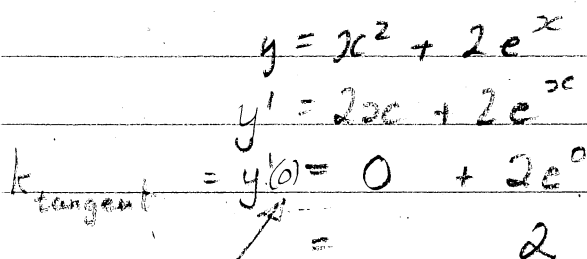 y = x² + 2e^x
y' = 2x + 2e^x
k tangent = y'(0) = 0 + 2e^0
= 2